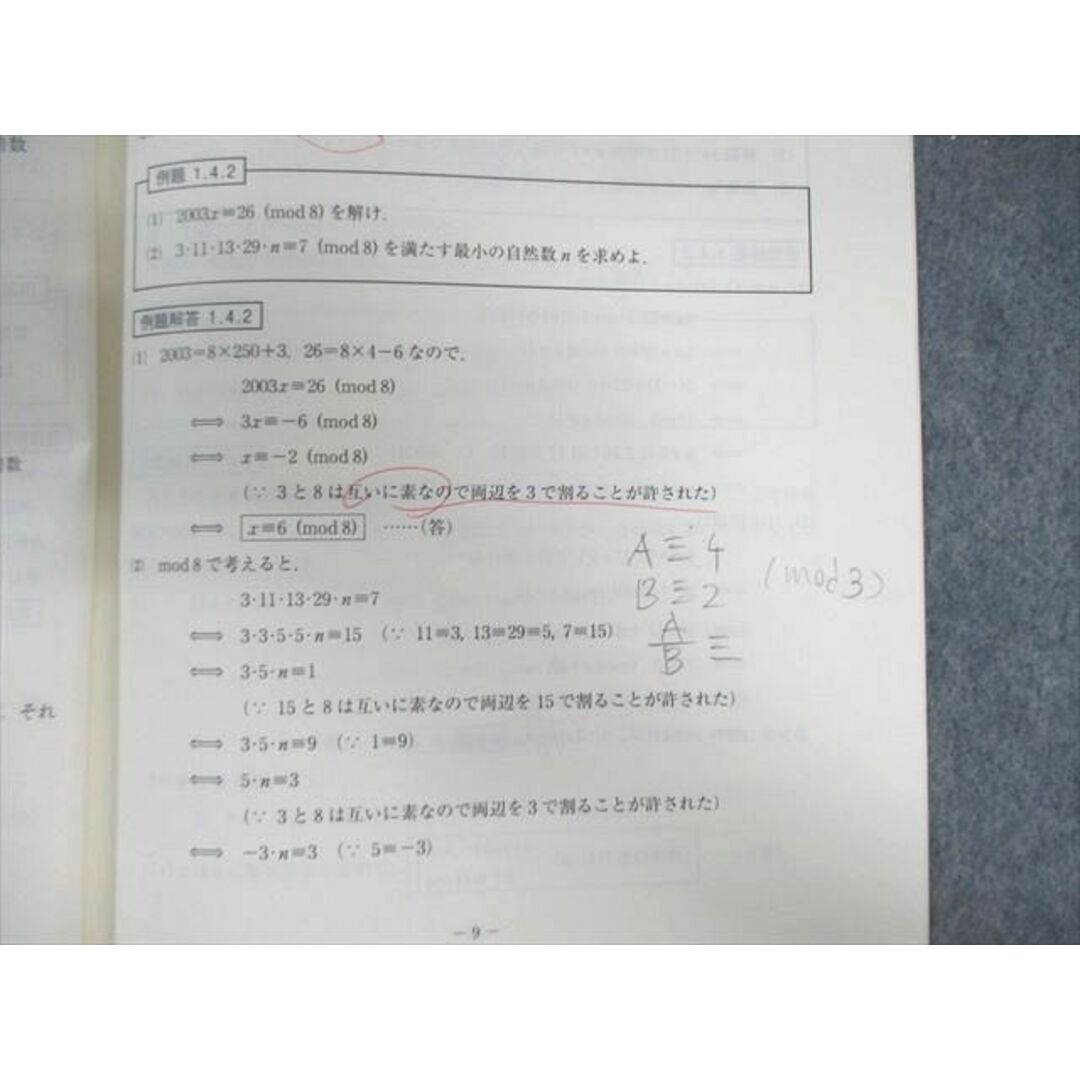 数
例題 1.4.2
(1) 2003x≡26 (mod 8) を解け.
(2) 3·11·13·29·n≡7 (mod 8) を満たす最小の自然数 n を求めよ.
例題解答 1.4.2
(1) 2003=8×250+3, 26=8×4−6 なので,
2003x≡26 (mod 8)
⟺ 3x≡−6 (mod 8)
⟺ x≡−2 (mod 8)
(∵ 3 と 8 は互いに素なので両辺を 3 で割ることが許された)
⟺ x≡6 (mod 8) ……(答)
(2) mod 8 で考えると,
3·11·13·29·n≡7
⟺ 3·3·5·5·n≡15 (∵ 11≡3, 13≡29≡5, 7≡15)
⟺ 3·5·n≡1
(∵ 15 と 8 は互いに素なので両辺を 15 で割ることが許された)
⟺ 3·5·n≡9 (∵ 1≡9)
⟺ 5·n≡3
(∵ 3 と 8 は互いに素なので両辺を 3 で割ることが許された)
⟺ −3·n≡3 (∵ 5≡−3)
A≡4
B≡2 (mod 3)
A/B ≡
数
それ
− 9 −